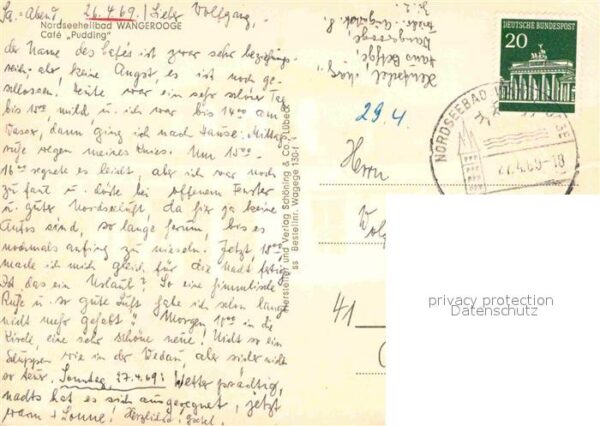 Sa.-Abend 26.4.69. Lieber Wolfgang,
Nordseeheilbad WANGEROOGE
Café „Pudding"
der Name des Cafés ist zwar sehr beziehungs-
reich - aber keine Angst, es ist noch ge-
schlossen! Heute war ein sehr schöner Tag
bis 15.00, mild u. ich war bis 14.00 am
Wasser, dann ging ich nach Hause: Mittags-
ruhe wegen meines Knies. Um 15.00-
16.00 regnete es leicht, aber ich war noch
zu faul u. döste bei offenem Fenster
u. guter Nordseeluft, da hier ja keine
Autos sind, so lange herum, bis es
nochmals anfing zu nieseln. Jetzt, 18.00
mache ich mich gleich für die Nacht fertig
Ist das ein Urlaub! So eine himmlische
Ruhe u. so gute Luft habe ich schon lange
nicht mehr gehabt! Morgen 10.00 in die
Kirche, eine sehr schöne neue! Nicht so ein
Schuppen wie in der, aber sicher nicht
so teuer. Sonntag 27.4.69: Wetter prächtig,
nachts hat es sich ausgeregnet, jetzt
warm + Sonne! Herzlichst,
Hersteller und Verlag Schöning & Co., Lübeck
ss Bestellnr. Wagege 130
Wangerooge
29.4.
DEUTSCHE BUNDESPOST
20
NORDSEEBAD
27.4.69-18
Herrn
41
privacy protection
Datenschutz